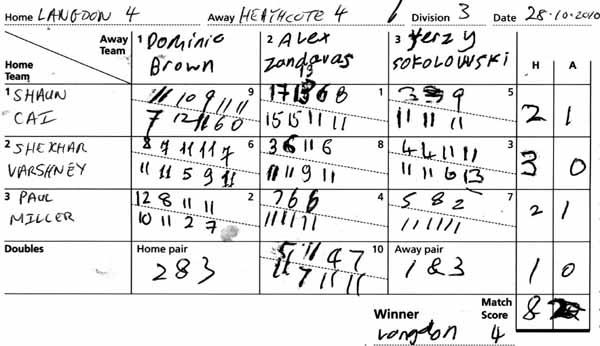 Home LANGDON 4 Away HEATHCOTE 4 Division 3 Date 28.10.2010
Away Team 1 Dominic Brown 2 Alex Zandavas 3 Jerzy SOKOLOWSKI H A
Home Team
1 SHAUN CAI 9 1 5 2 1
11 10 9 11 11 17 13 6 8 3 9
7 12 11 6 0 15 15 11 11 11 11 11
2 SHEKHAR VARSHNEY 6 8 3 3 0
8 7 11 11 7 3 6 11 6 4 4 11 11
11 11 5 9 11 11 11 9 11 11 11 6 13
3 PAUL MILLER 2 4 7 2 1
12 8 11 11 7 6 6 5 8 2
10 11 2 7 11 11 11 11 11 11
Doubles Home pair 10 Away pair
2 & 3 5 11 9 7 1 & 3 1 0
11 7 11 11
Winner Langdon Match Score 8
4